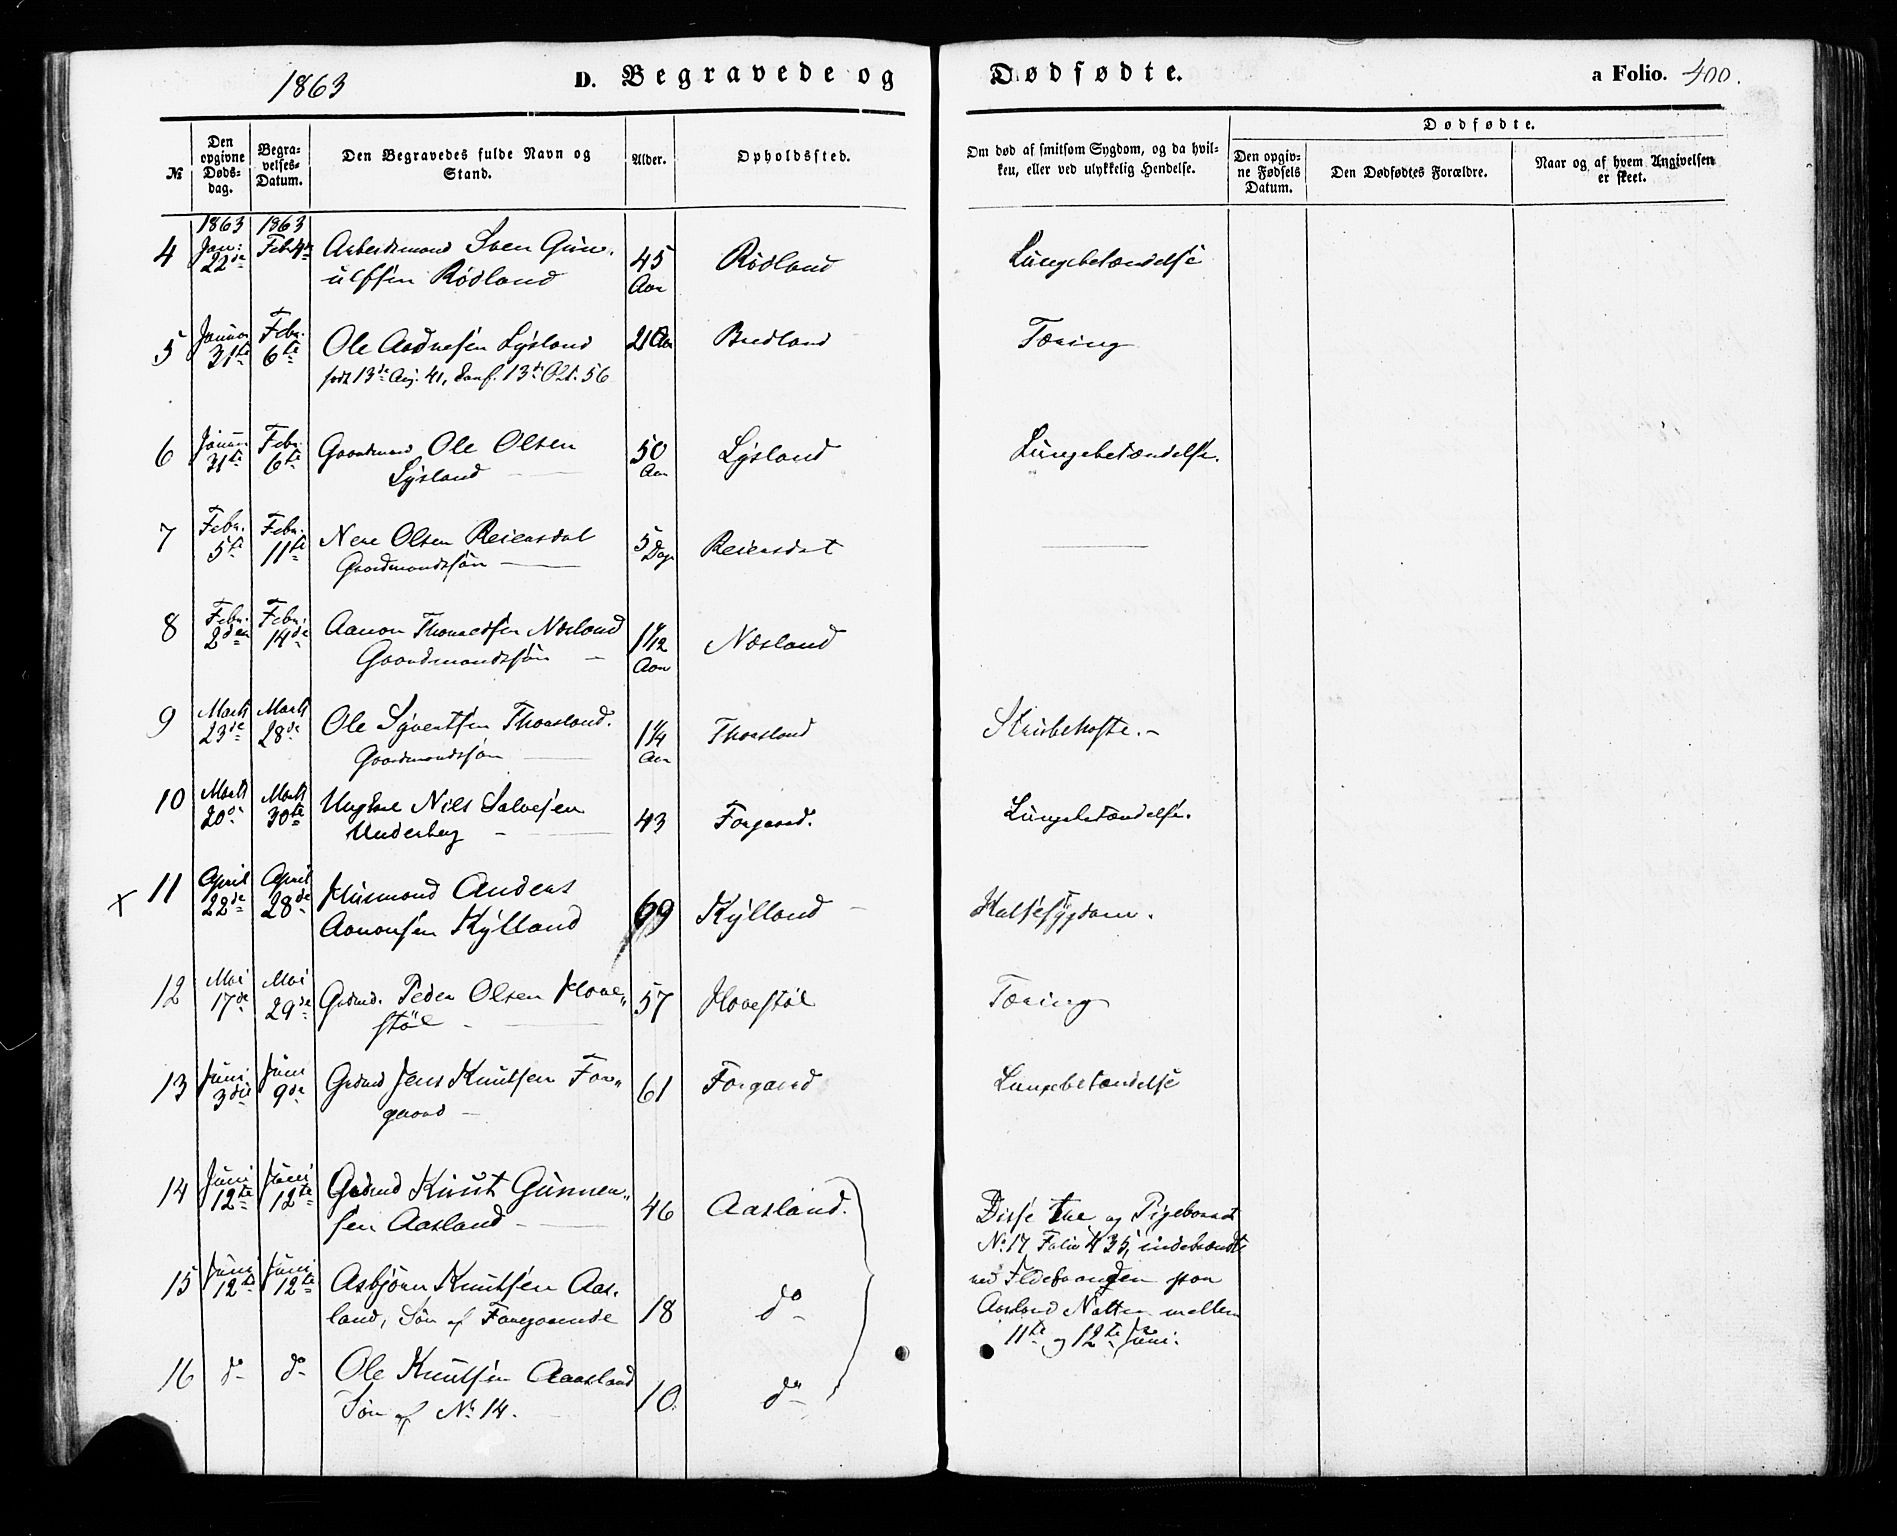 1863
D. Begravede og Dødfødte.
a Folio. 400.
№
Den opgivne Dødsdag.
Begravelses-Datum.
Den Begravedes fulde Navn og Stand.
Alder.
Opholdssted.
Om død af smitsom Sygdom, og da hvilken, eller ved ulykkelig Hendelse.
Dødfødte.
Den opgivne Fødsels Datum.
Den Dødfødtes Forældre.
Naar og af hvem Angivelsen er skeet.
1863 1863
4 Jan: 22de Febr 4de Arbeidsmand Sven Gun- 45 Rødland Lungebetændelse
ulfsen Rødland Aar
5 Januar 31te Febr. 6te Ole Aadnesen Lysland 21 Aar Bredland Tæring
født 13de Aug. 41, Conf. 13de Oct. 56
6 Januar 31te Febr. 6te Gaardmand Ole Olsen 50 Lysland Lungebetændelse.
Lysland Aar
7 Febr. 5te Febr. 11te Olsen Reiersdal 5 Dage Reiersdal
Gaardmandssøn
8 Febr. 2den Febr. 14de Aanon Thomassen Næsland 1 1/12 Næsland
Gaardmandssøn Aar
9 Marts 23de Marts 28de Ole Syvertsen Thorsland. 1 1/4 Thorsland Strubehoste.
Gaardmandssøn Aar
10 Marts 20de Marts 30te Ungkarl Nils Salvesen 43 Forgard. Lungebetændelse.
Underberg
x 11 April 22de April 28de Husmand Anders 69 Kylland Halsesygdom.
Aanonsen Kylland
12 Mai 17de Mai 29de Grdmd. Peder Olsen Hove„ 57 Hovestøl Tæring
støl
13 Juni 3die Juni 9de Grdmd Jens Knutsen For„ 61 Forgard Lungebetændelse
gaard
14 Juni 12te Juni 12te Grdmd Knut Gunnen„ 46 Aasland.
sen Aasland
Disse tre og Pigebarnet
No 17 Folio 435, indebrændte
ved Ildebranden paa
Aasland Natten mellem
11te og 12te Juni.
15 Juni 12te Juni 12te Asbjørn Knutsen Aas- 18 do
land, Søn af Foregaaende
16 do do Ole Knutsen Aasland 10. do
Søn af No 14.